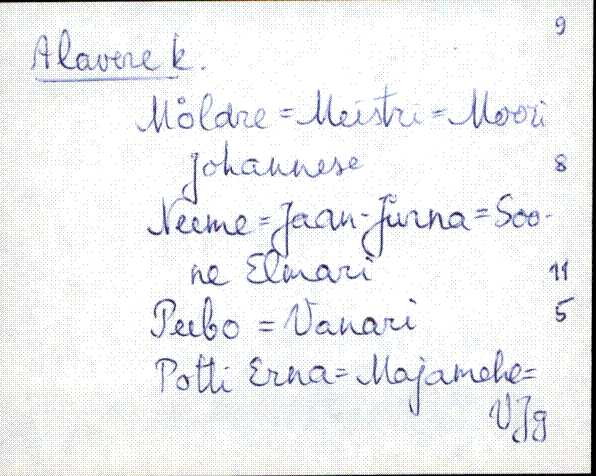 9
Alavere k.
Mõldre = Meistri = Moori
Johannese 8
Neeme = Jaan-Jürna = Soo-
ne Elmari 11
Peebo = Vanari 5
Potti Erna = Majamehe =
VJg